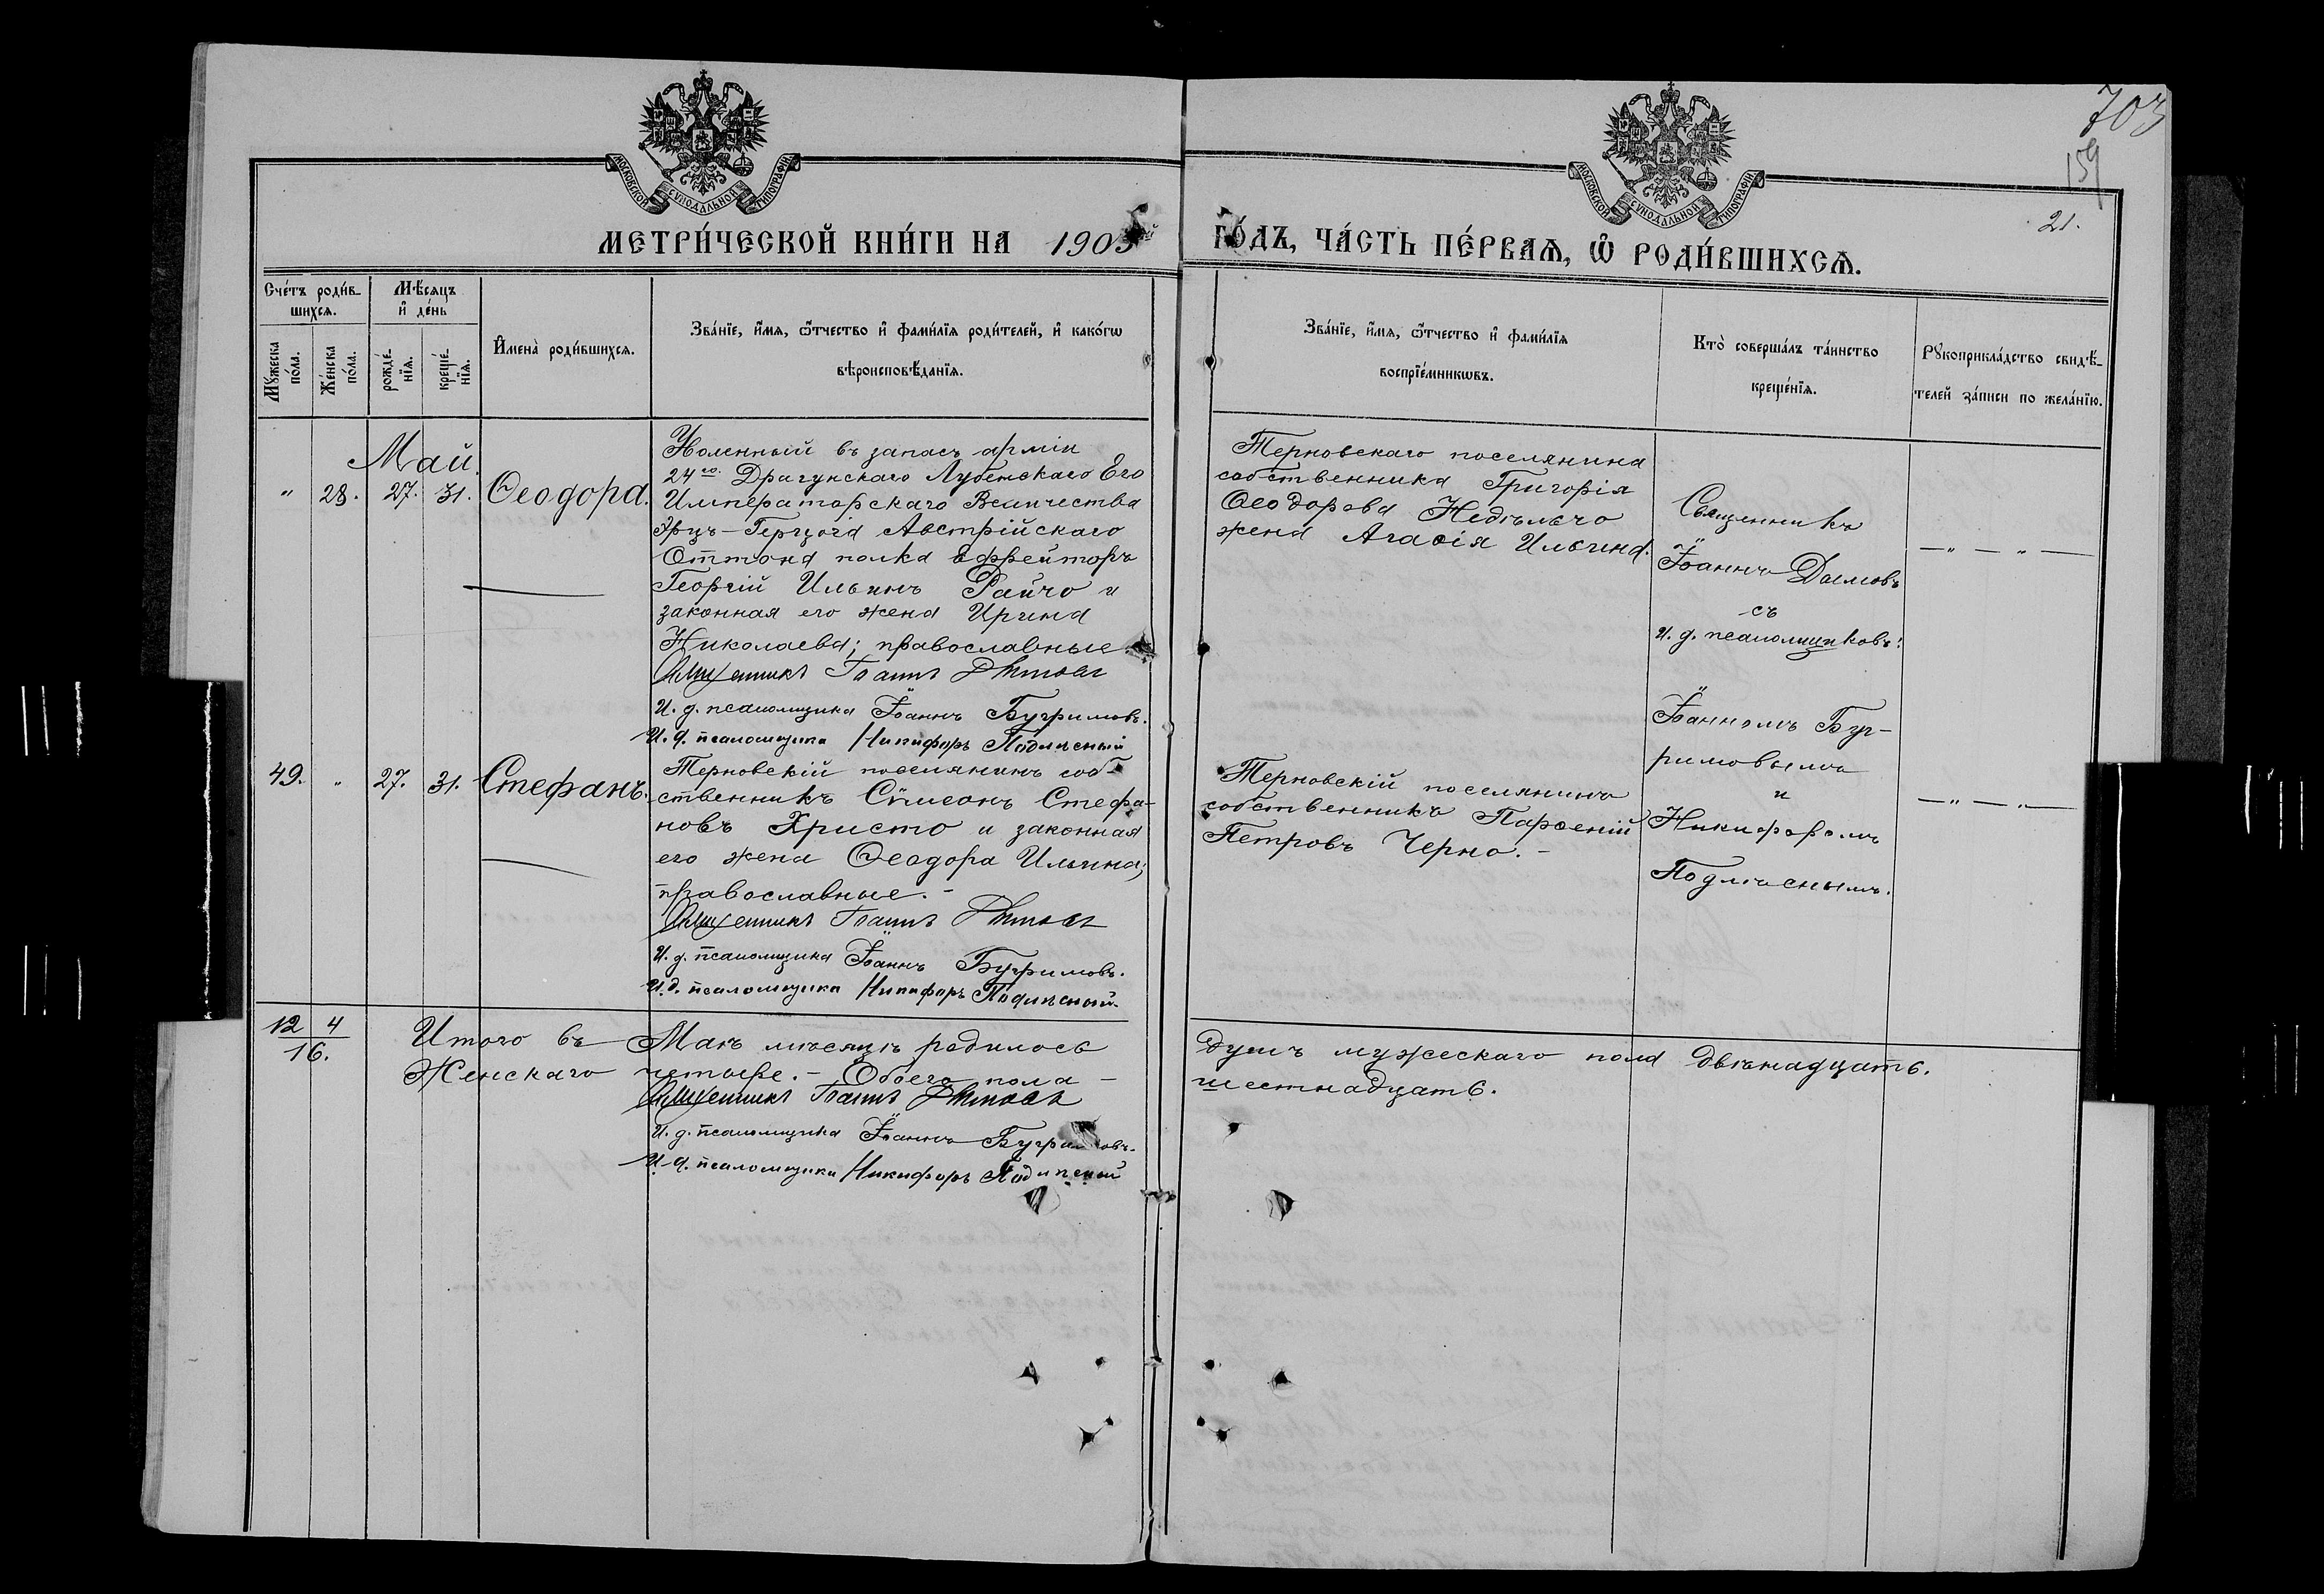 703
159
21.
МОСКОВСКОЙ СѴНОДАЛЬНОЙ ТИПОГРАФІИ
МОСКОВСКОЙ СѴНОДАЛЬНОЙ ТИПОГРАФІИ
МЕТРИ́ЧЕСКОЙ КНИ́ГИ НА 1905 ГО́ДЪ, ЧА́СТЬ ПЕ́РВАѦ, Ѡ҆ РОДИ́ВШИХСѦ.
Сче́тъ роди́в-
шихсѧ.
Мѣ́сѧцъ
и҆ де́нь
Мꙋ́жеска
по́ла.
Же́нска
по́ла.
рожде́-
нїѧ.
креще́-
нїѧ.
И҆мена̀ роди́вшихсѧ.
Зва́нїе, и҆́мѧ, ѻ҆́тчество и҆ фами́лїѧ роди́телей, и҆ како́гѡ
вѣроисповѣ́данїѧ.
Зва́нїе, и҆́мѧ, ѻ҆́тчество и҆ фами́лїѧ
воспрїе́мникѡвъ.
Кто̀ соверша́лъ та́инство
креще́нїѧ.
Рꙋкоприкла́дство свидѣ́-
телей за́писи по жела́нїю.
Май.
" 28. 27. 31. Ѳеодора.
Уволенный въ запасъ арміи
24го. Драгунскаго Лубенскаго Его
Императорскаго Величества
Эрцъ-Герцога Австрійскаго
Оттона полка Ефрейторъ
Георгій Ильинъ Райчо и
законная его жена Ирина
Николаева; православные
Священникъ Іоаннъ Дымовъ
И. д. псаломщика Іоаннъ Бугримовъ.
И. д. псаломщика Никифоръ Подлѣсный
Терновскаго поселянина
собственника Григорія
Ѳеодорова Недѣлько
жена Агаѳія Ильина.
Священникъ
Іоаннъ Дымовъ
съ
и. д. псаломщиковъ:
Іоанномъ Буг-
римовымъ
и
Никифоромъ
Подлѣснымъ.
— " — " —
49. " 27. 31. Стефанъ.
Терновскій поселянинъ соб-
ственникъ Сѵмеонъ Стефа-
новъ Христо и законная
его жена Ѳеодора Ильина;
православные.-
Священникъ Іоаннъ Дымовъ
И. д. псаломщика Іоаннъ Бугримовъ.
И. д. псаломщика Никифоръ Подлѣсный
Терновскій поселянинъ
собственникъ Парѳеній
Петровъ Черно.-
— " — " —
12 4
16.
Итого въ Маѣ мѣсяцѣ родилось душъ мужескаго пола двѣнадцать.
Женскаго четыре.- Обоего пола - шестнадцать.
Священникъ Іоаннъ Дымовъ
И. д. псаломщика Іоаннъ Бугримовъ.
И. д. псаломщика Никифоръ Подлѣсный